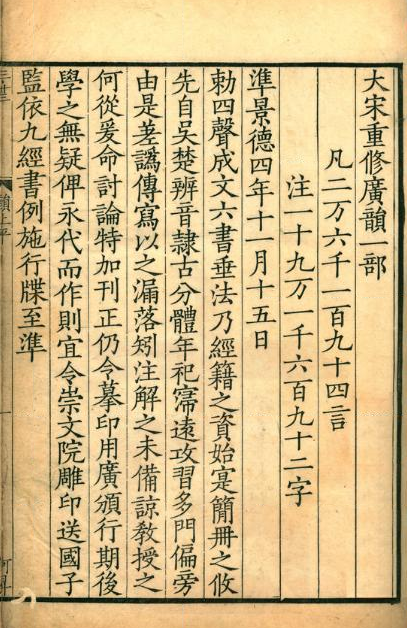 大宋重修廣韻一部
凡二万六千一百九十四言
注一十九万一千六百九十二字
準景德四年十一月十五日
勑四聲成文六書垂法乃經籍之資始寔簡冊之攸
先自吴楚辨音隸古分體年祀寖遠攻習多門偏旁
由是差譌傳寫以之漏落矧注解之未備諒教授之
何從爰命討論特加刊正仍令摹印用廣頒行期後
學之無疑俾永代而作則宜令崇文院雕印送國子
監依九經書例施行牒至準
韻上平